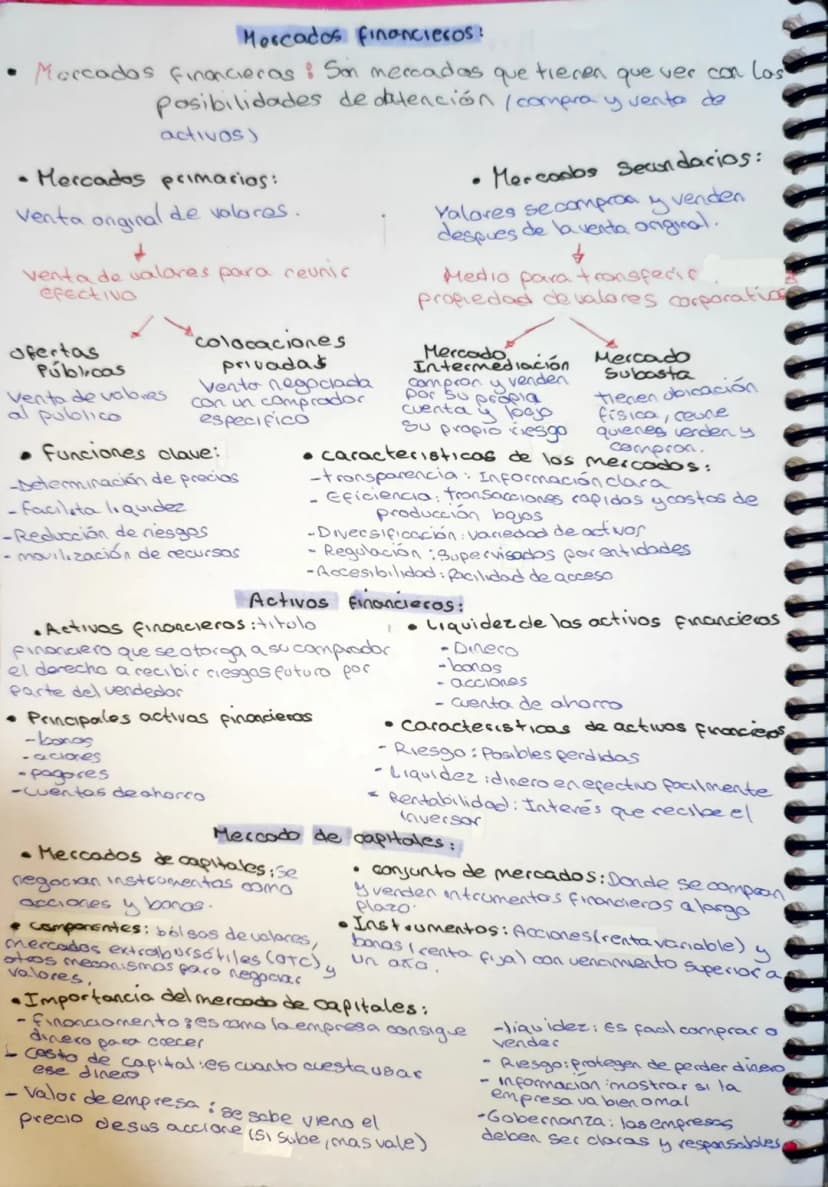 Mercados financieros:
• Mercados financieros: Son mercados que tienen que ver con las
posibilidades de obtención (compra y venta de
activos)
• Mercados primarios:
Venta original de valores.
Venta de valores para reunir
efectivo
Ofertas
Públicas
Venta de valores
al público
colocaciones
privadas
Venta negociada
con un comprador
especifico
• Mercados Secundarios:
Valores se compran y venden
despues de la venta original.
Medio para transferir
propiedad de valores corporativos
Mercado
Intermediación
compran y venden
por su propia
cuenta y
su propio riesgo
Mercado
Subasta
tienen ubicación
física, reune
quienes venden y
compran.
• Funciones clave:
-Determinación de precios
- facilita liquidez
-Reducción de riesgos
- movilización de recursos
• características de los mercados:
-transparencia: Información clara
- Eficiencia: transacciones rapidas y costos de
producción bajos
-Diversificación: variedad de activos
- Regulación: Supervisados por entidades
-Accesibilidad: facilidad de acceso
Activos financieros:
• Activos financieros: titulo
financiero que se otorga a su comprador
el derecho a recibir riesgos futuro por
parte del vendedor
• Liquidez de los activos financieros
- Dinero
-bonos
- acciones
- cuenta de ahorro
• Principales activos financieros
-bonos
-aciones
-pagores
-cuentas de ahorro
• características de activos financieros
- Riesgo: Posibles perdidas
- Liquidez: dinero en efectivo facilmente
- Rentabilidad: Interés que recibe el
inversor
Mercado de capitales:
• Mercados de capitales: se
negocian instrumentos como
acciones y bonos.
• conjunto de mercados: Donde se compran
y venden intrumentos financieros a largo
plazo.
• componentes: bolsas de valores,
mercados extrabursátiles (OTC), y
otros mecanismos para negociar
valores,
• Instrumentos: Acciones (renta variable) y
bonos (renta fija) con vencimiento superior a
un año.
• Importancia del mercado de capitales:
- financiamento: es como la empresa consigue
dinero para crecer
- costo de capital: es cuanto cuesta usar
ese dinero
- Valor de empresa: se sabe vieno el
precio de sus accione (si sube, mas vale)
-liquidez: Es facil comprar o
vender
- Riesgo: protegen de perder dinero
- información: mostrar si la
empresa va bien o mal
-Gobernanza: las empresas
deben ser claras y responsables